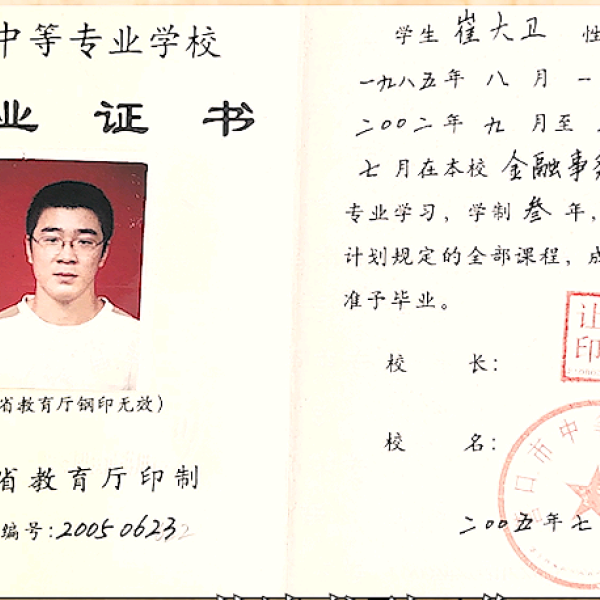 中等专业学校
业 证 书
省教育厅钢印无效)
省教育厅印制
编号:20050623
学生 崔大卫 性
一九八五年 八 月 一
二00二年 九 月至
七 月在本校 金融事务
专业学习，学制 叁 年，
计划规定的全部课程，成
准予毕业。
校 长:
校 名:
口市中
二00五年 七